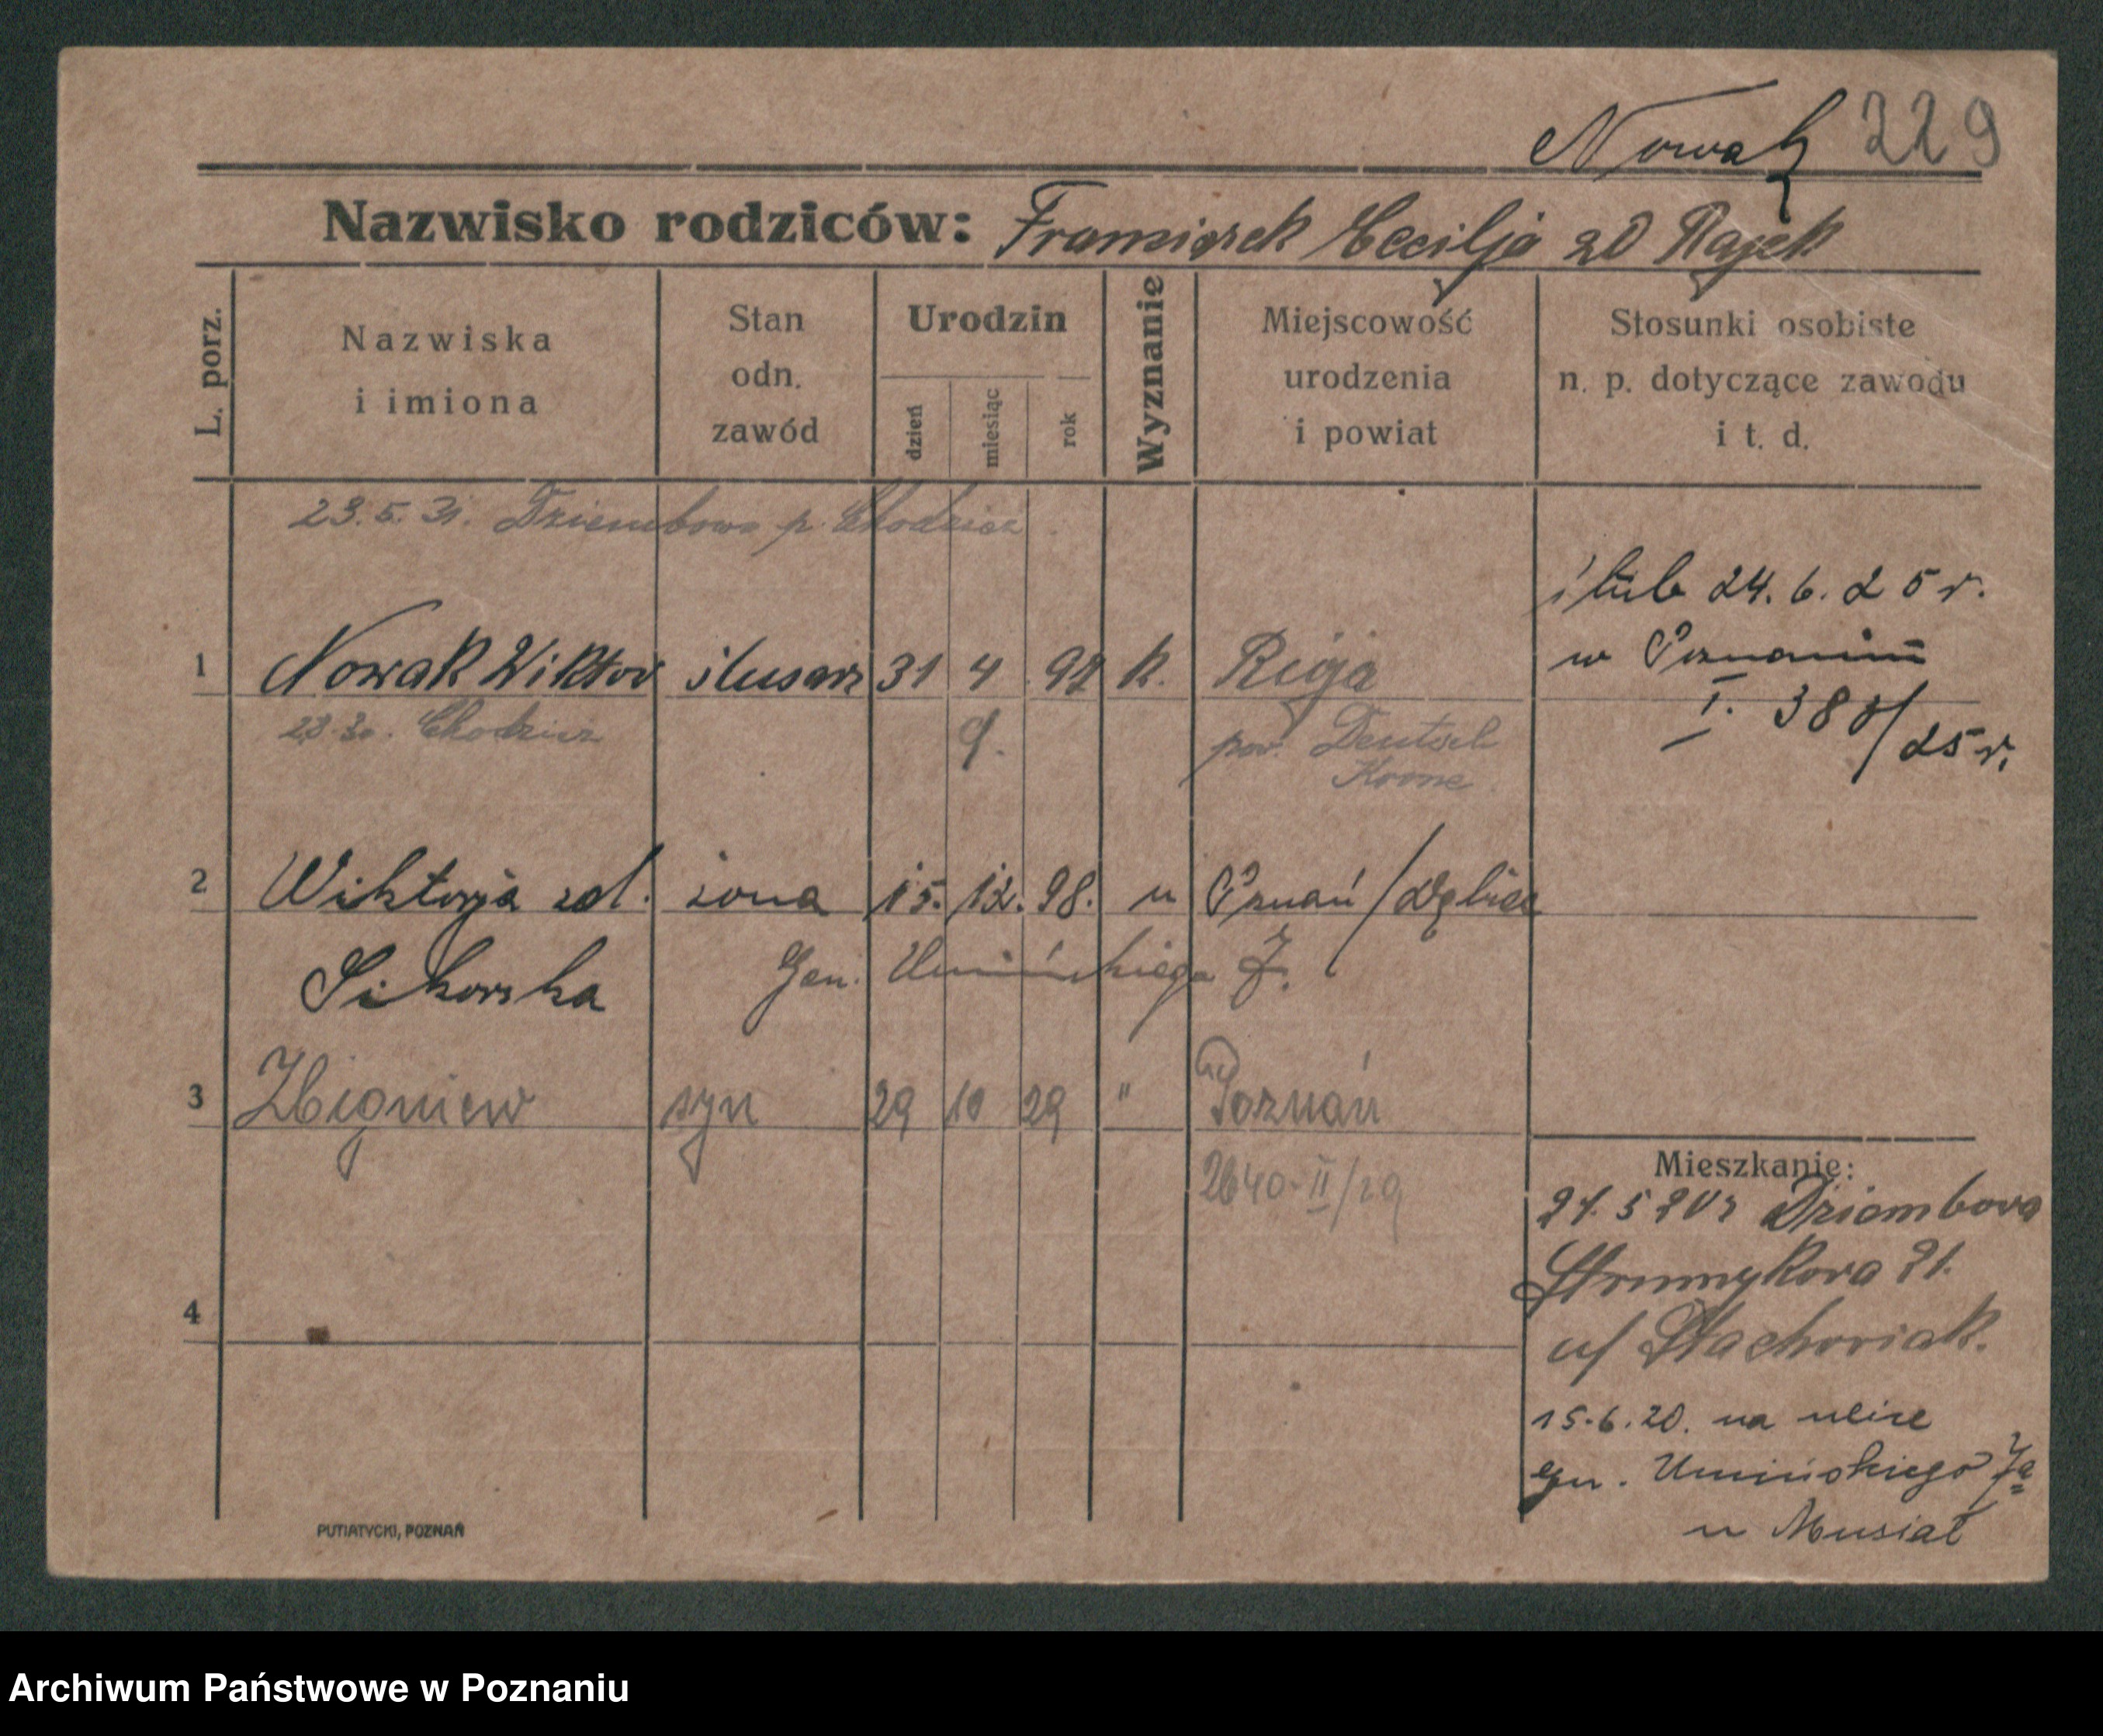 Nowak 229
Nazwisko rodziców: Franciszek Cecilja zd Rajek
L. porz.
Nazwiska i imiona
Stan odn. zawód
Urodzin
dzień miesiąc rok
Wyznanie
Miejscowość urodzenia i powiat
Stosunki osobiste n. p. dotyczące zawodu i t. d.
23.5.31. Dziembowo p. Chodzież
ślub 24.6.25 r.
w Poznaniu
I. 380/25 r.
1 Nowak Wiktor ślusarz 31 4 97 k. Riga
23.3o. Chodzież 9. pow. Deutsch
Krone
2 Wiktorja zd. żona 15. 12. 98. " Poznań / Dębiec
Sikorska Gen. Umińskiego 7.
3 Zbigniew syn 29 10 29 " Poznań
2640-II/29
Mieszkanie:
21.5 20r Dziembowa
Strumykowa 21.
u/ Stachowiak.
4
15.6.20. na ulice
gen. Umińskiego 7a
u Musiał
PUTIATYCKI, POZNAŃ
Archiwum Państwowe w Poznaniu